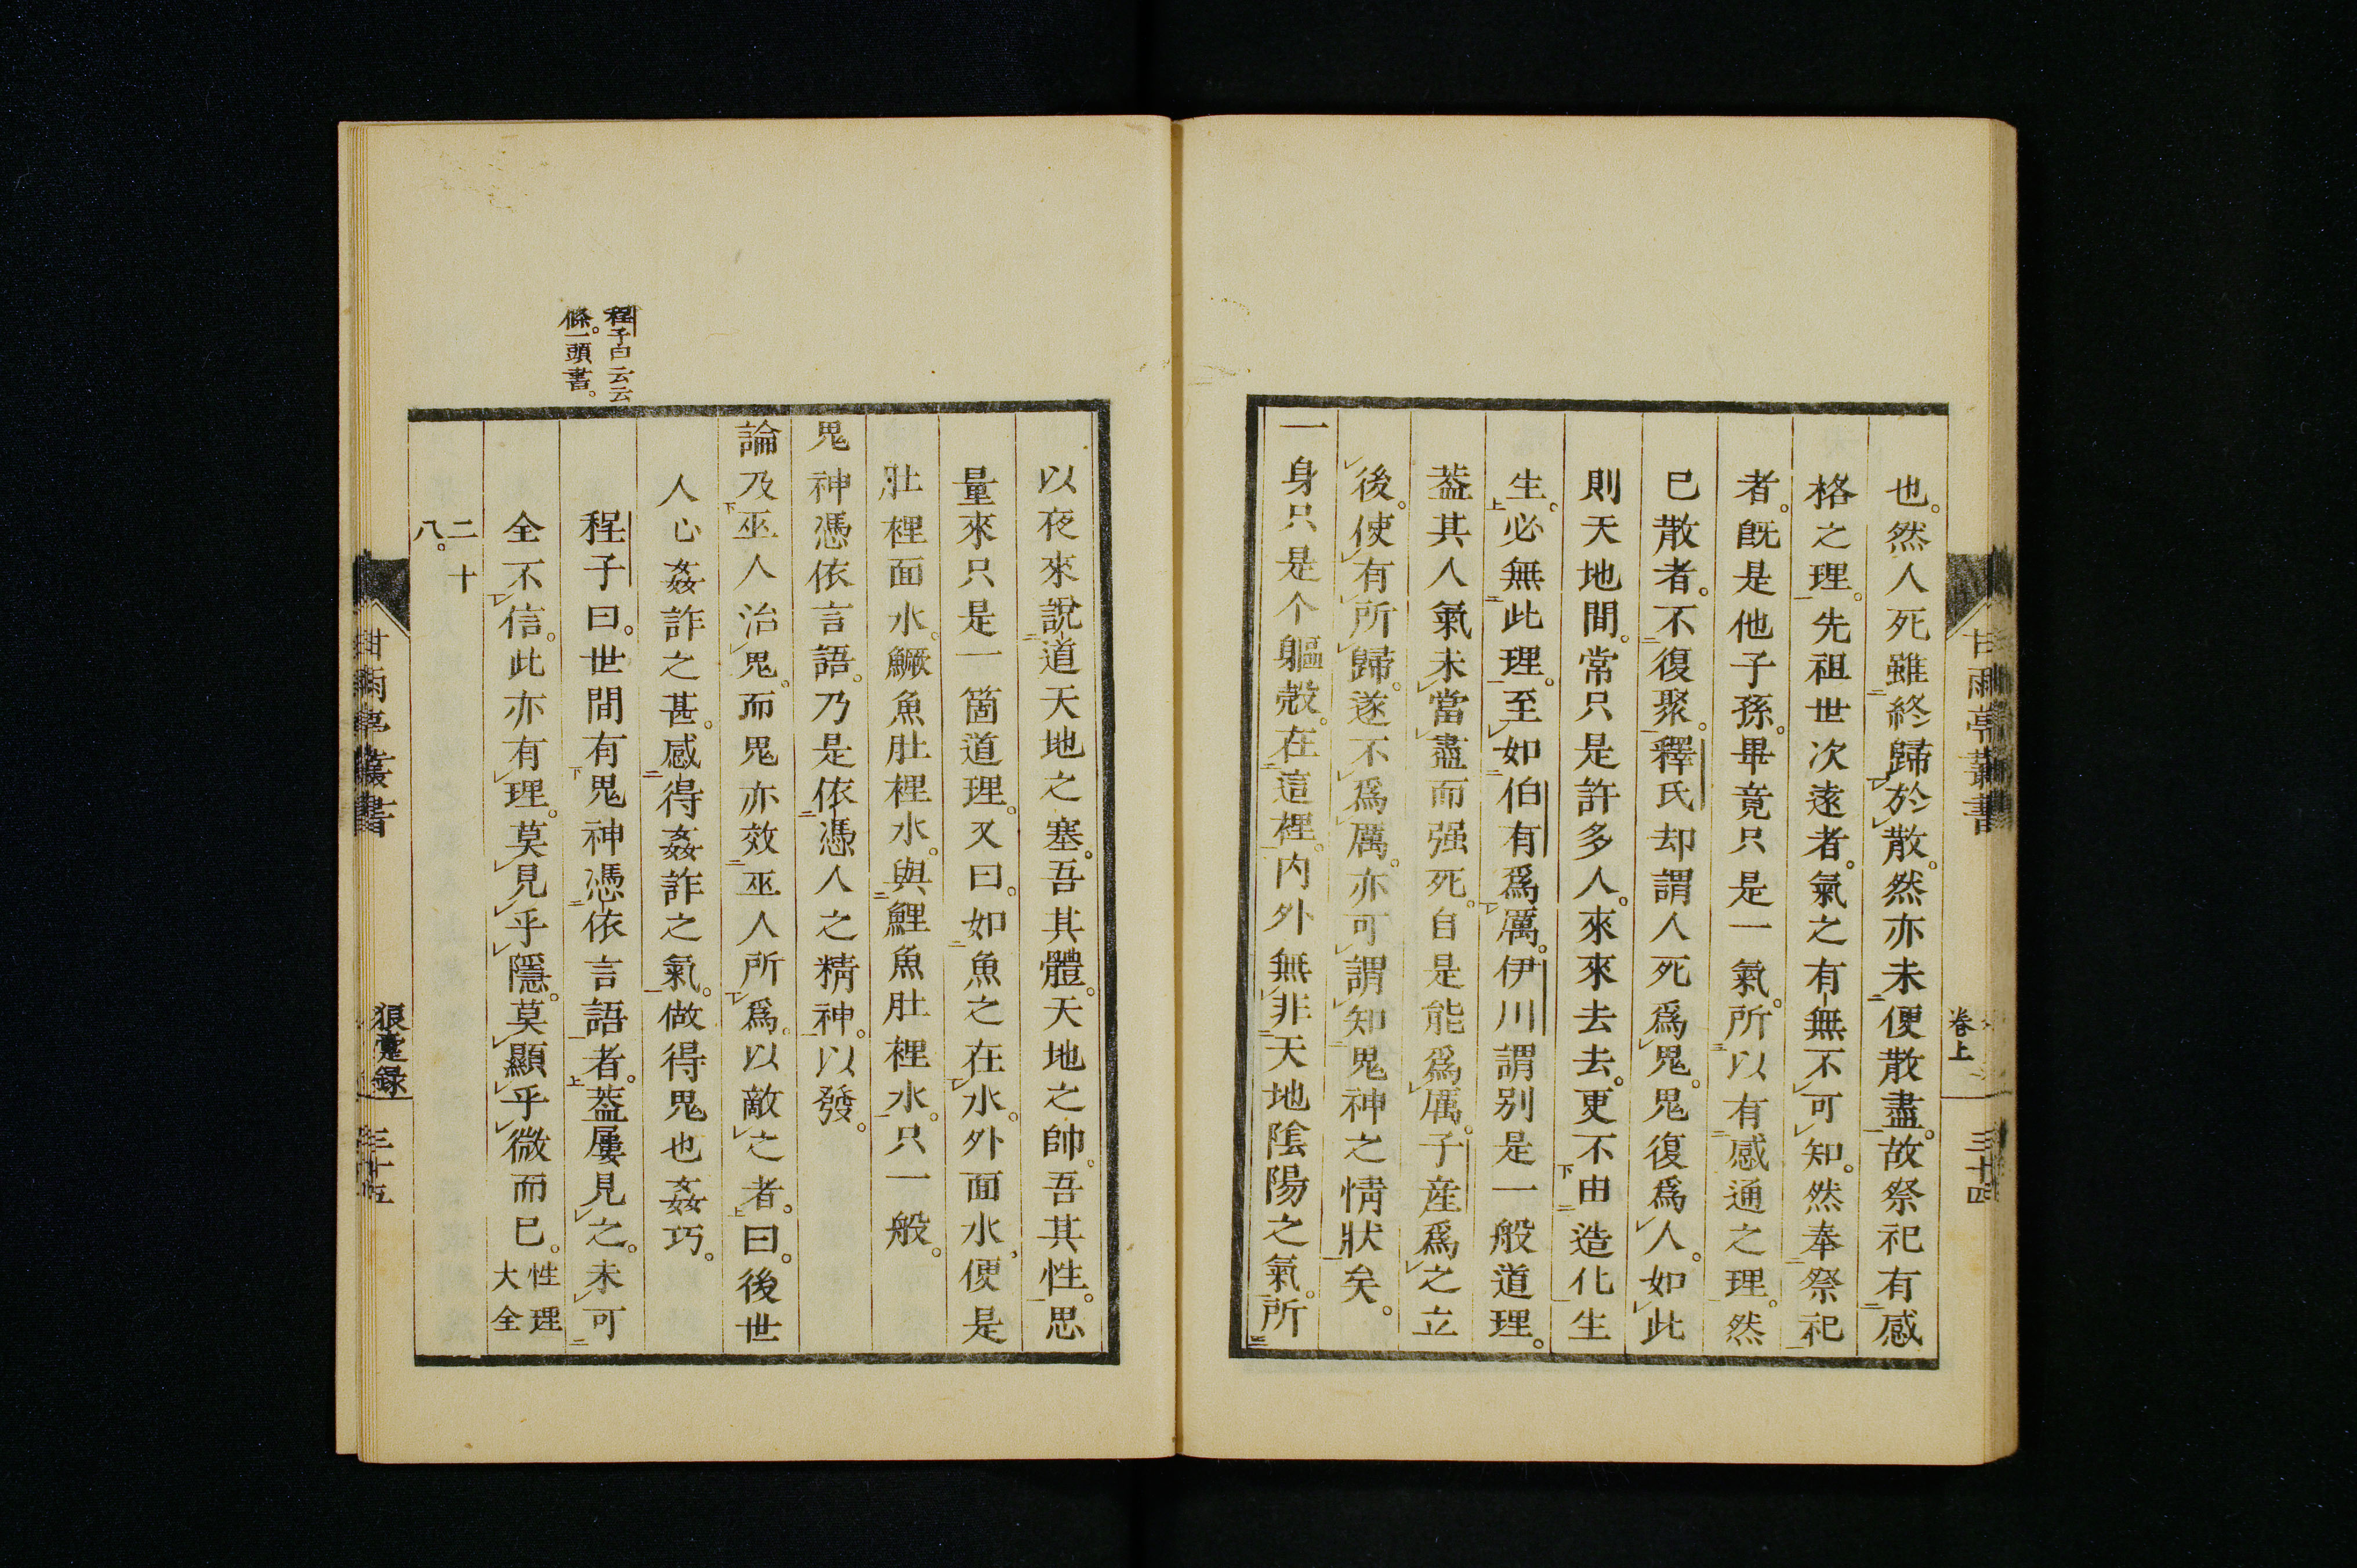 也。然人死雖終歸於散。然亦未便散盡。故祭祀有感
格之理。先祖世次遠者。氣之有無不可知。然奉祭祀
者。既是他子孫。畢竟只是一氣。所以有感通之理。然
已散者。不復聚。釋氏却謂人死爲鬼。鬼復爲人。如此
則天地間。常只是許多人。來來去去。更不由造化生
生。必無此理。至如伯有爲厲。伊川謂別是一般道理。
葢其人氣未當盡而强死。自是能爲厲。子産爲之立
後。使有所歸。遂不爲厲。亦可謂知鬼神之情狀矣。
一身只是个軀殼。在這裡。内外無非天地陰陽之氣。所
甘雨亭叢書
卷上
三十四
以夜來說道天地之塞。吾其體。天地之帥。吾其性。思
量來只是一箇道理。又曰。如魚之在水。外面水、便是
肚裡面水。鱖魚肚裡水。與鯉魚肚裡水。只一般。
鬼神憑依言語。乃是依憑人之精神。以發。
論乃巫人治鬼。而鬼亦效巫人所爲。以敵之者。曰。後世
人心姦詐之甚。感得姦詐之氣。做得鬼也姦巧。
程子曰。世間有鬼神憑依言語者。葢屢見之。未可
全不信。此亦有理。莫見乎隱。莫顯乎微而已。性理
大全
二十
八。
程子曰云云
條。一頭書。
甘雨亭叢書
狼疐録
三十五